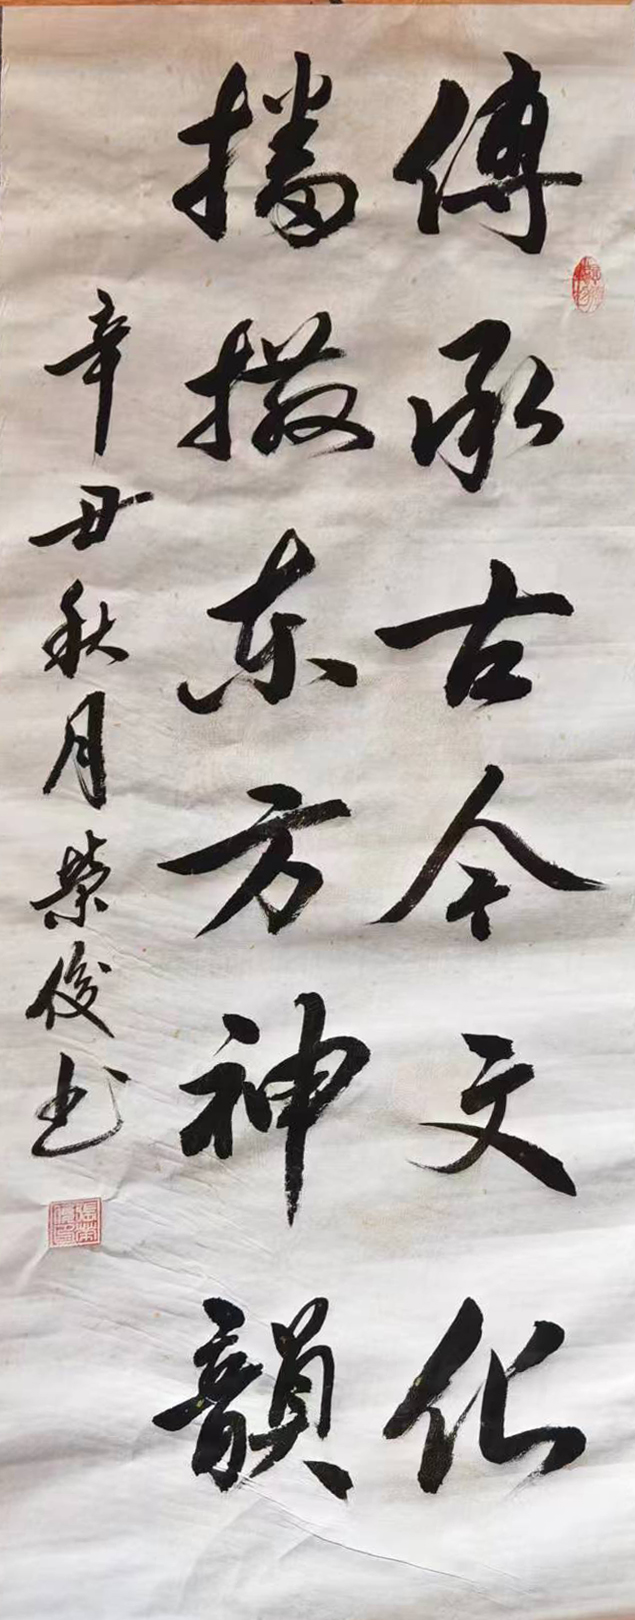 傳承古今文化
播撒东方神韻
辛丑秋月榮俊书